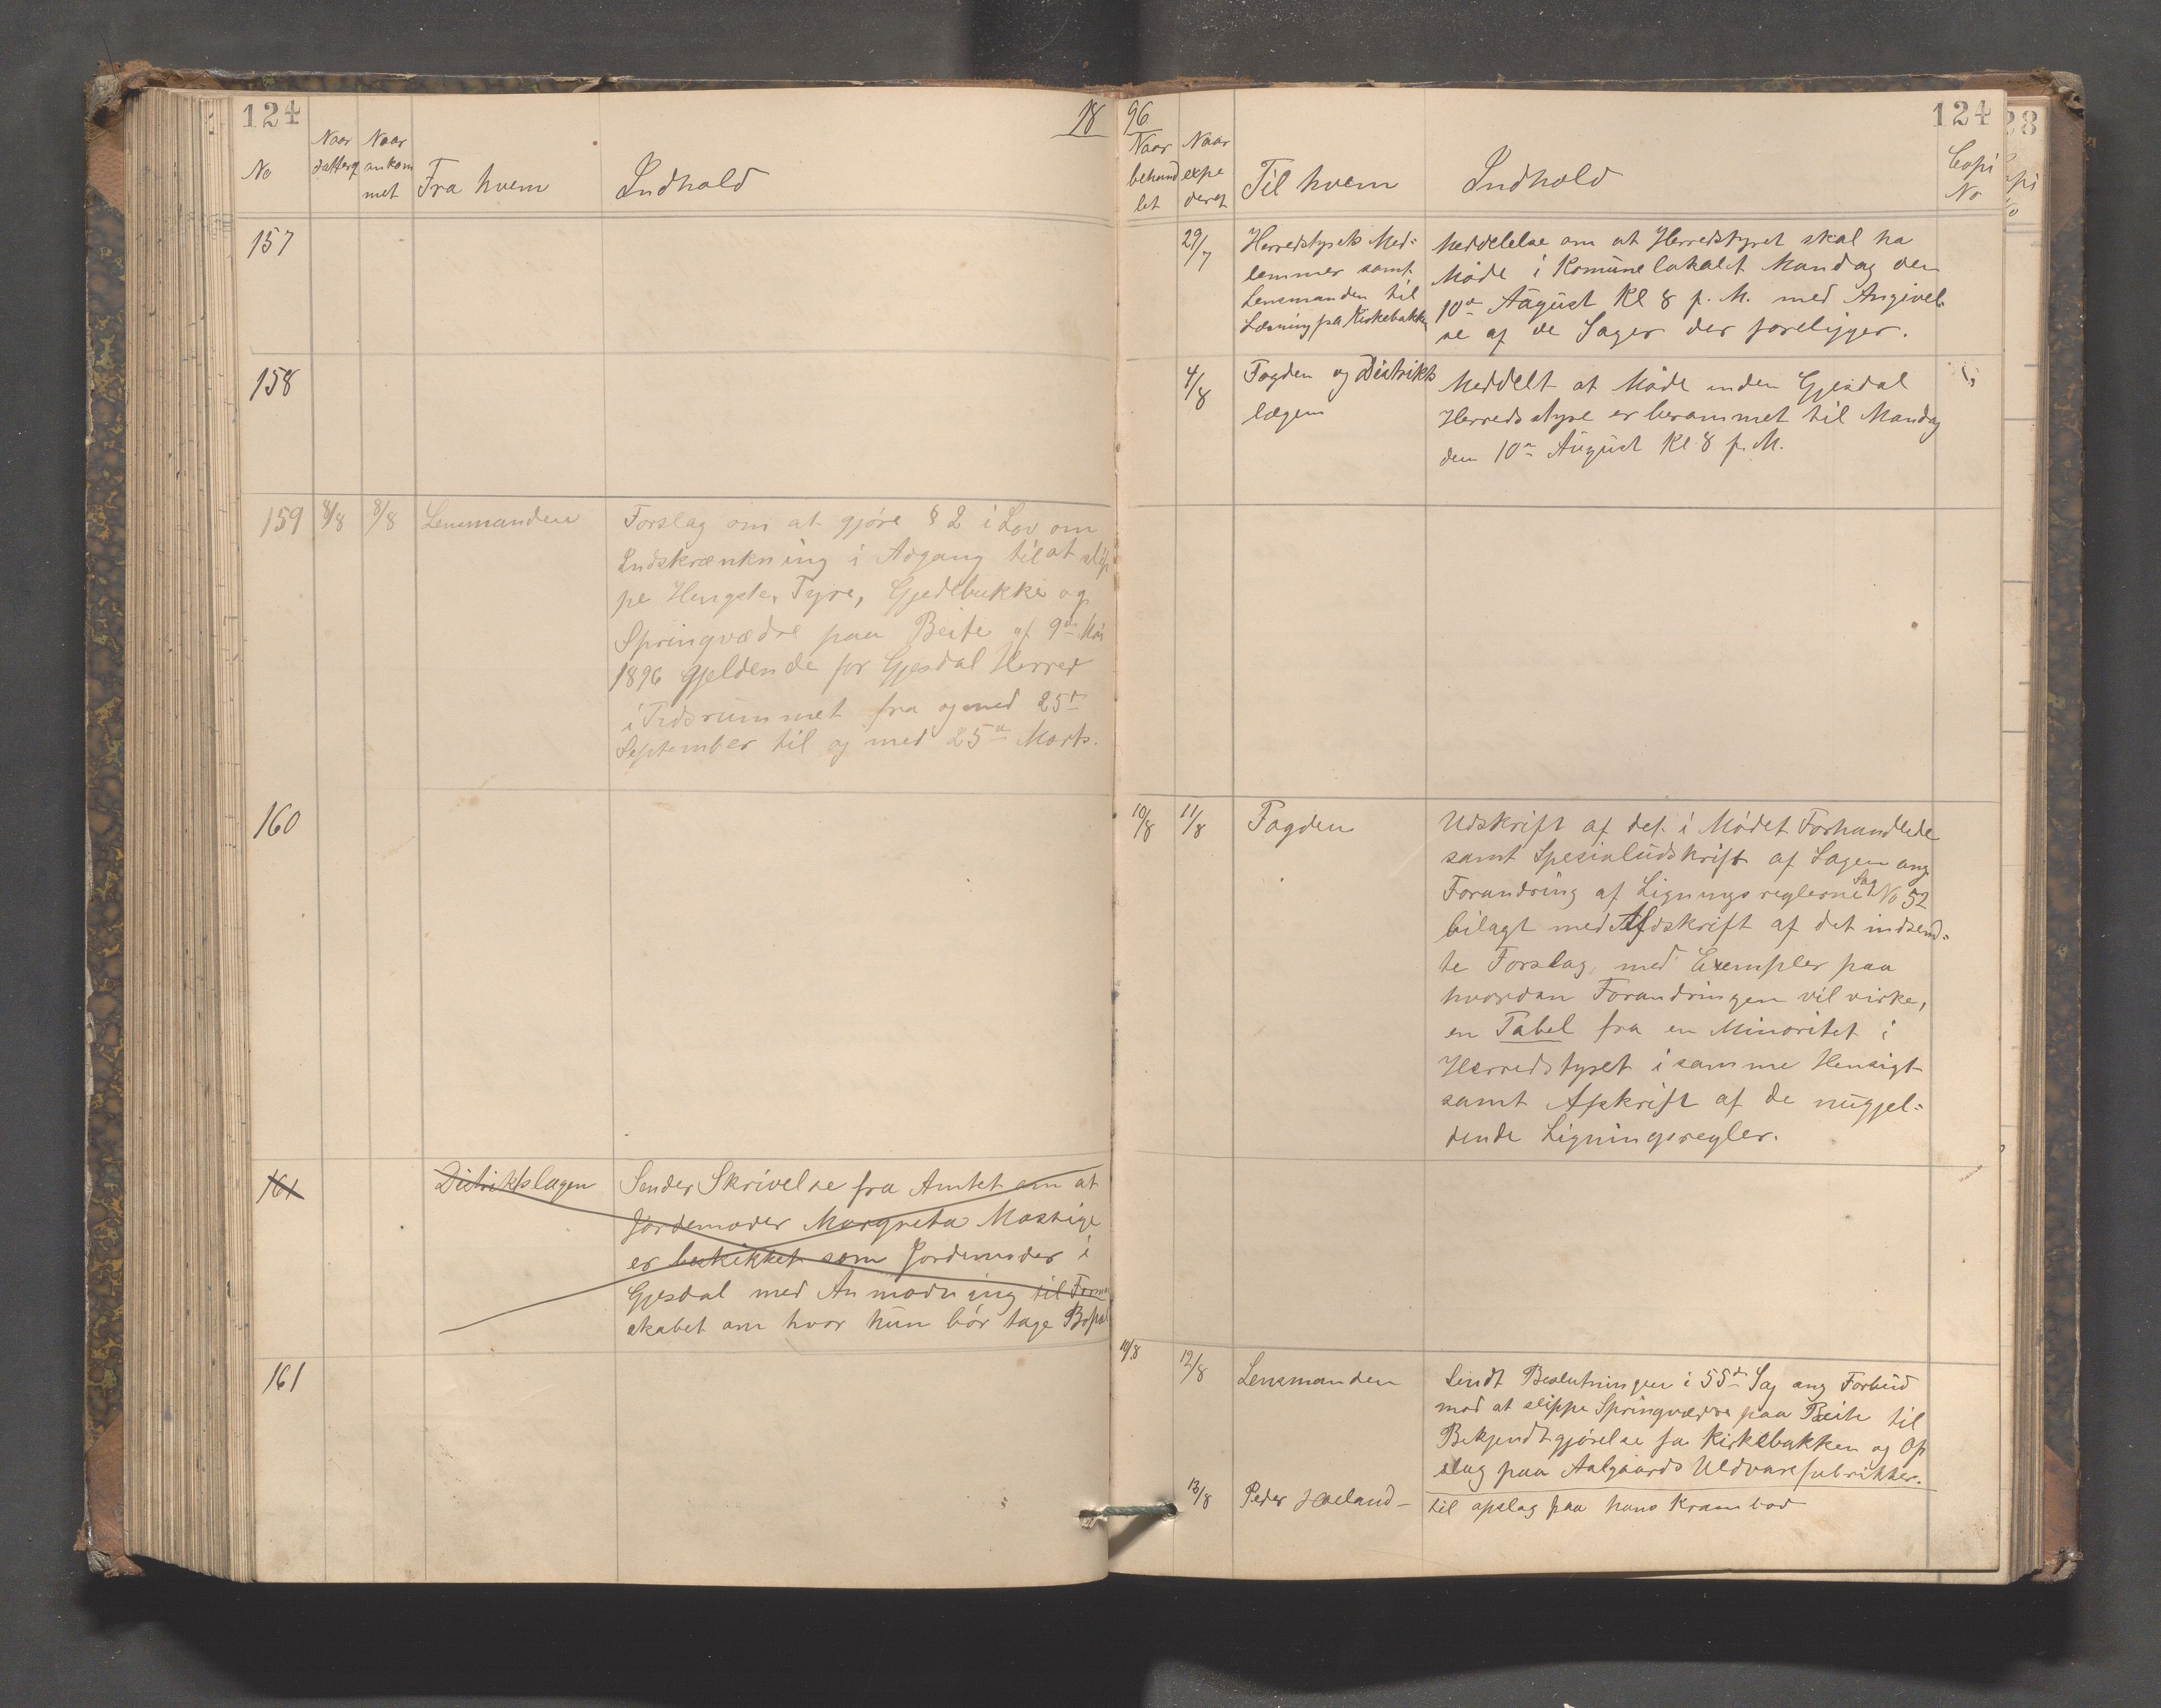 124
18
No
Naar
datterat
Naar
ankom
met
Fra hvem
Indhold
157
158
159 8/8 8/8 Lensmanden
Forslag om at gjøre § 2 i Lov om
Indskrænkning i Adgang til at slip
pe Hengste, Tyre, Gjedebukke og
Springvædre paa Beite af 9de Mai
1896 gjeldende for Gjesdal Herred
i Tidsrummet fra og med 25de
September til og med 25de Marts.
160
161 Distriktslægen
Sender Skrivelse fra Amtet om at
Jordemoder Margreta
er beskikket som Jordemoder i
Gjesdal med Anmodning til Form
skabet om hvor hun bør tage Bopæl
161
96
124
Naar
behand
let
Naar
expe
deret
Til hvem
Indhold
Copi
No
29/7
Herredstyrets Med=
lemmer samt
Lensmanden til
Læsning på Kirkebakken
Meddelelse om at Herredstyret skal ha
Møde i Komunelokalet Mandag den
10de August Kl 8 p. M. med Angivel
se af de Sager der foreligger.
4/8
Fogden og Distrikts
lægen
Meddelt at Møde inden Gjesdal
Herredsstyre er berammet til Mandag
den 10de August Kl 8 p. M.
10/8 11/8 Fogden
Udskrift af det i Mødet Forhandlede
samt Spesialudskrift af Sagen ang
Forandring af Ligningsreglerne Sag No 52
bilagt med Afdskrift af det indsend=
te Forslag, med Exempler paa
hvordan Forandringen vil virke,
en Tabel fra en Minoritet i
Herredstyret i samme Hensigt
samt Afskrift af de nugjel=
dende Ligningsregler.
10/8 12/8 Lensmanden
Sendt Beslutningen i 55de Sag ang Forbud
mod at slippe Springvædre paa Beite til
Bekjendtgjørelse fra Kirkebakken og Op
slag paa Aalgaards Uldvarefabrikker.
13/8 Peder Høeland –
til opslag paa hans Krambod